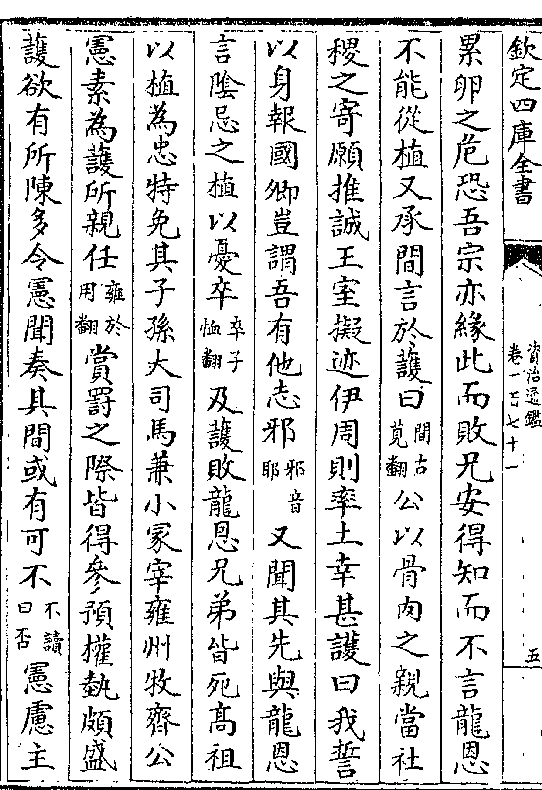 欽定四庫全書
資治通鑑
卷一百七十一
五
累卵之危恐吾宗亦緣此而敗兄安得知而不言龍恩
不能從植又承間言於護曰間古莧翻公以骨肉之親當社
稷之寄願推誠王室擬迹伊周則率土幸甚護曰我誓
以身報國卿豈謂吾有他志邪邪音耶又聞其先與龍恩
言陰忌之植以憂卒卒子恤翻及護敗龍恩兄弟皆死高祖
以植為忠特免其子孫大司馬兼小冢宰雍州牧齊公
憲素為護所親任雍於用翻賞罰之際皆得參預權埶頗盛
護欲有所陳多令憲聞奏其間或有可不不讀曰否憲慮主